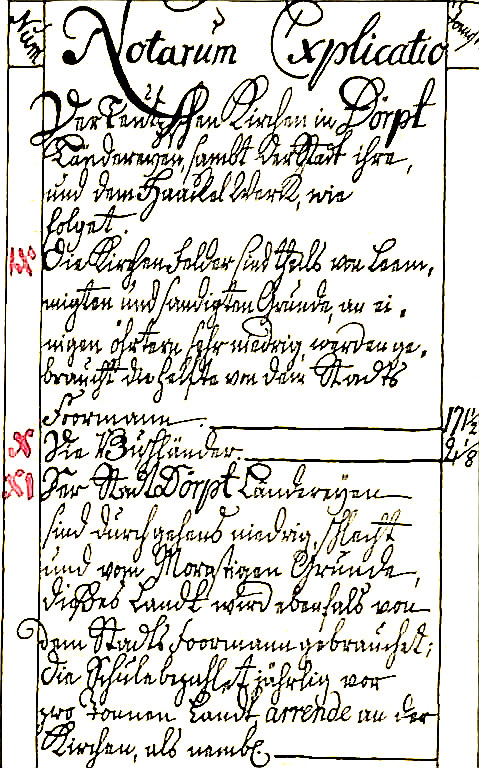 Num Notarum Explicatio
Der Teutschen Kirchen in Dörpt
Ländereyen, sambt der Stadt ihre,
und dem Haackelwerk, wie
folget.
Die Kirchen Felder sind theils von Leem,
migten und sandigten Grunde, an ei,
nigen öhrtern sehr niedrig, werden ge,
braucht die helfte von dem Stadts
Foormann 17 1/2
X Die Buschländer. 2 1/8
XI Der Stadt Dörpt Ländereyen
sind durchgehens niedrig, schlecht
und vom Morastigen Grunde,
dießes Landt wird ebenfals von
dem Stadts Foormann gebrauchet;
die Schule bezahlet jährlig vor
pro Tonnen Landt arrende an der
Kirchen, als nembl.